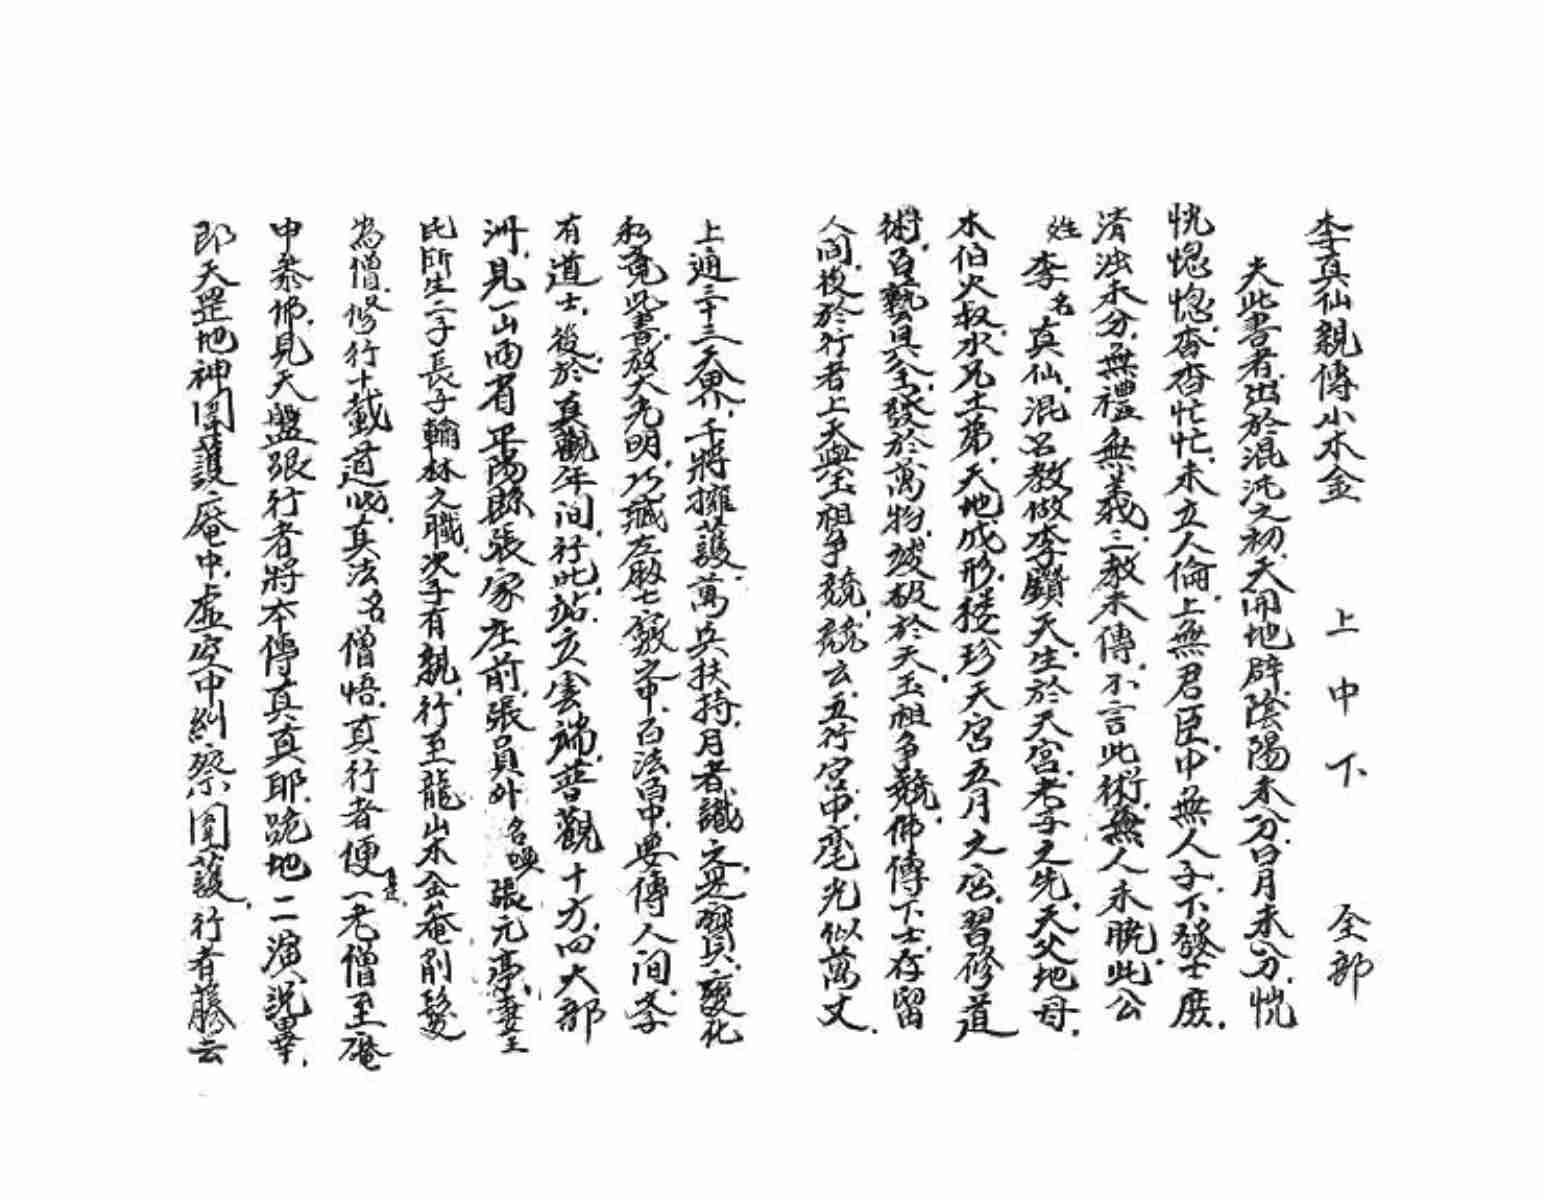 李真仙親傳小木金 上中下 全部
夫此書者出於混沌之初天開地辟陰陽未分日月未分恍
恍惚惚杳杳忙忙未立人倫上無君臣中無人子下發士庶
清濁未分無禮無義三教未傳不言此術無人未曉此公
姓李名真仙混名教做李鑽天生於天宮老子之先天父地母
木伯火叔水兄土弟天地成形 珍天宮五月之宮習修道
術百藝具全發於萬物 於天玉祖争競佛傳下士存留
人間後於行者上天與玉祖争競競云五行宮中毫光似萬丈
上通三十三天界千將擁護萬兵扶持月者識之是寶貝變化
私 此書放大光明巧 左 七竅之中百法百中要傳人間李
有道士後於真觀年间行此 立雲端普觀十方四大部
洲見一山西省平陽縣張家庄前張員外名喚張元亭妻王
氏所生二子長子翰林之職次子有親行至龍山木金菴削髮
為僧修行十載道成真法名僧悟真行者便 一老僧至庵
中恭佛見天盤張行者將本傳真真耶跪地二演説畢
即天罡地神圍護庵中虚空中糾察圍護行者 云